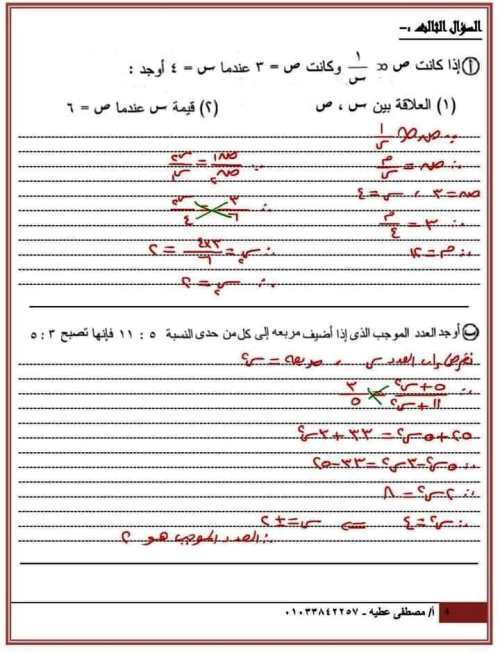 السؤال الثالث :-
(أ) إذا كانت ص ∝ ١/س وكانت ص = ٣ عندما س = ٤ أوجد :
(١) العلاقة بين س ، ص (٢) قيمة س عندما ص = ٦
∵ ص ∝ ١/س
∴ ص = م/س ∵ ص١/ص٢ = س٢/س١
ص = ٣ ، س = ٤
∴ ٣ = م/٤ ∴ ٣/٦ = س٢/٤
∴ م = ١٢ ∴ س٢ = ٤×٣/٦ = ٢
∴ س٢ = ٢
(ب) أوجد العدد الموجب الذى إذا أضيف مربعه إلى كل من حدى النسبة ٥ : ١١ فإنها تصبح ٣ : ٥
نفرض ان العدد س ، مربعه = س٢
∴ ٥+س٢/١١+س٢ = ٣/٥
٢٥+٥س٢ = ٣٣+٣س٢
∴ ٥س٢-٣س٢ = ٣٣-٢٥
∴ ٢س٢ = ٨
∴ س٢ = ٤ ⇐ س = ±٢
∴ العدد الموجب هو ٢
أ/ مصطفى عطيه - ٠١٠٣٣٨٤٢٢٥٧